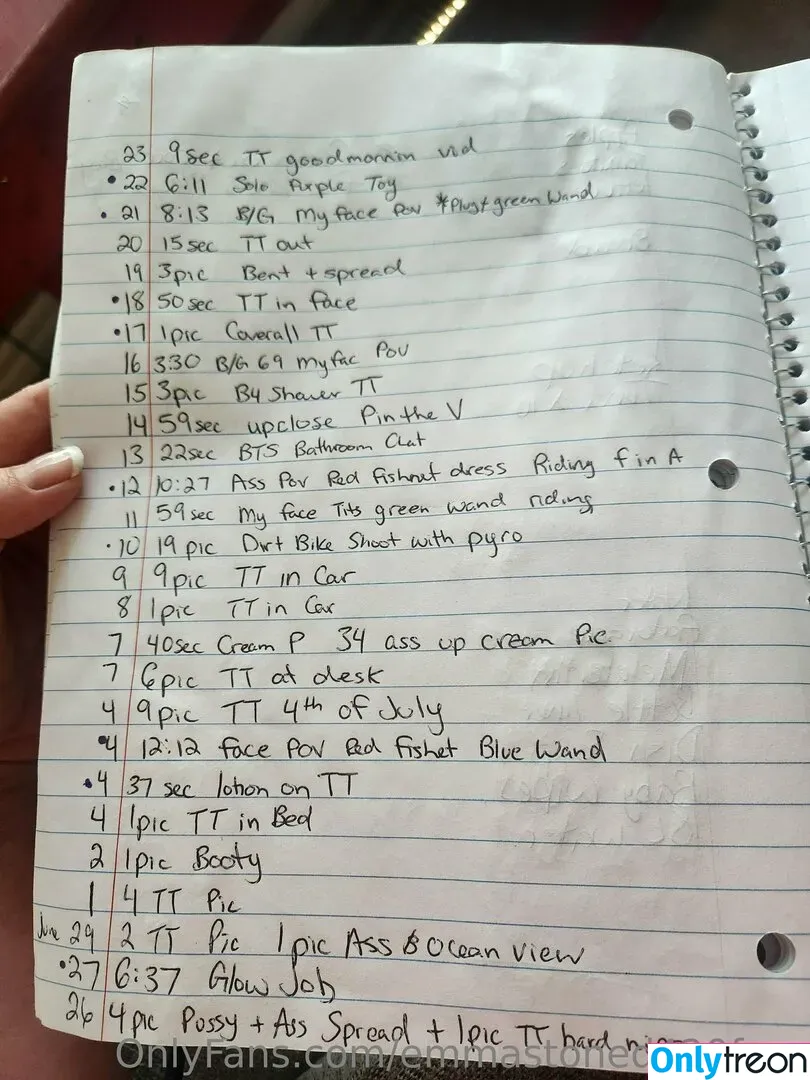 23 9sec TT goodmornin vid
• 22 6:11 Solo Purple Toy
• 21 8:13 B/G My face Pov *Plug+green Wand
20 15sec TT out
19 3pic Bent + spread
•18 50sec TT in face
•17 1pic Coverall TT
16 330 B/G 69 my fac Pov
15 3pic B4 Shower TT
14 59sec upclose Pin the V
13 22sec BTS Bathroom Chat
•12 10:27 Ass Pov Red fishnet dress Riding f in A
11 59sec My face Tits green wand riding
•10 19 pic Dirt Bike Shoot with pyro
9 9pic TT in Car
8 1pic TT in Car
7 40sec Cream P 34 ass up cream Pic
7 6pic TT at desk
4 9pic TT 4th of July
•4 12:12 face POV Red fishet Blue Wand
•4 37 sec lotion on TT
4 1pic TT in Bed
2 1pic Booty
1 4 TT Pic
June 29 2 TT Pic 1pic Ass & Ocean view
•27 6:37 Glow Job
26 4pic Pussy + Ass Spread + 1pic TT hard
OnlyFans.com/emmastone
Onlytreon